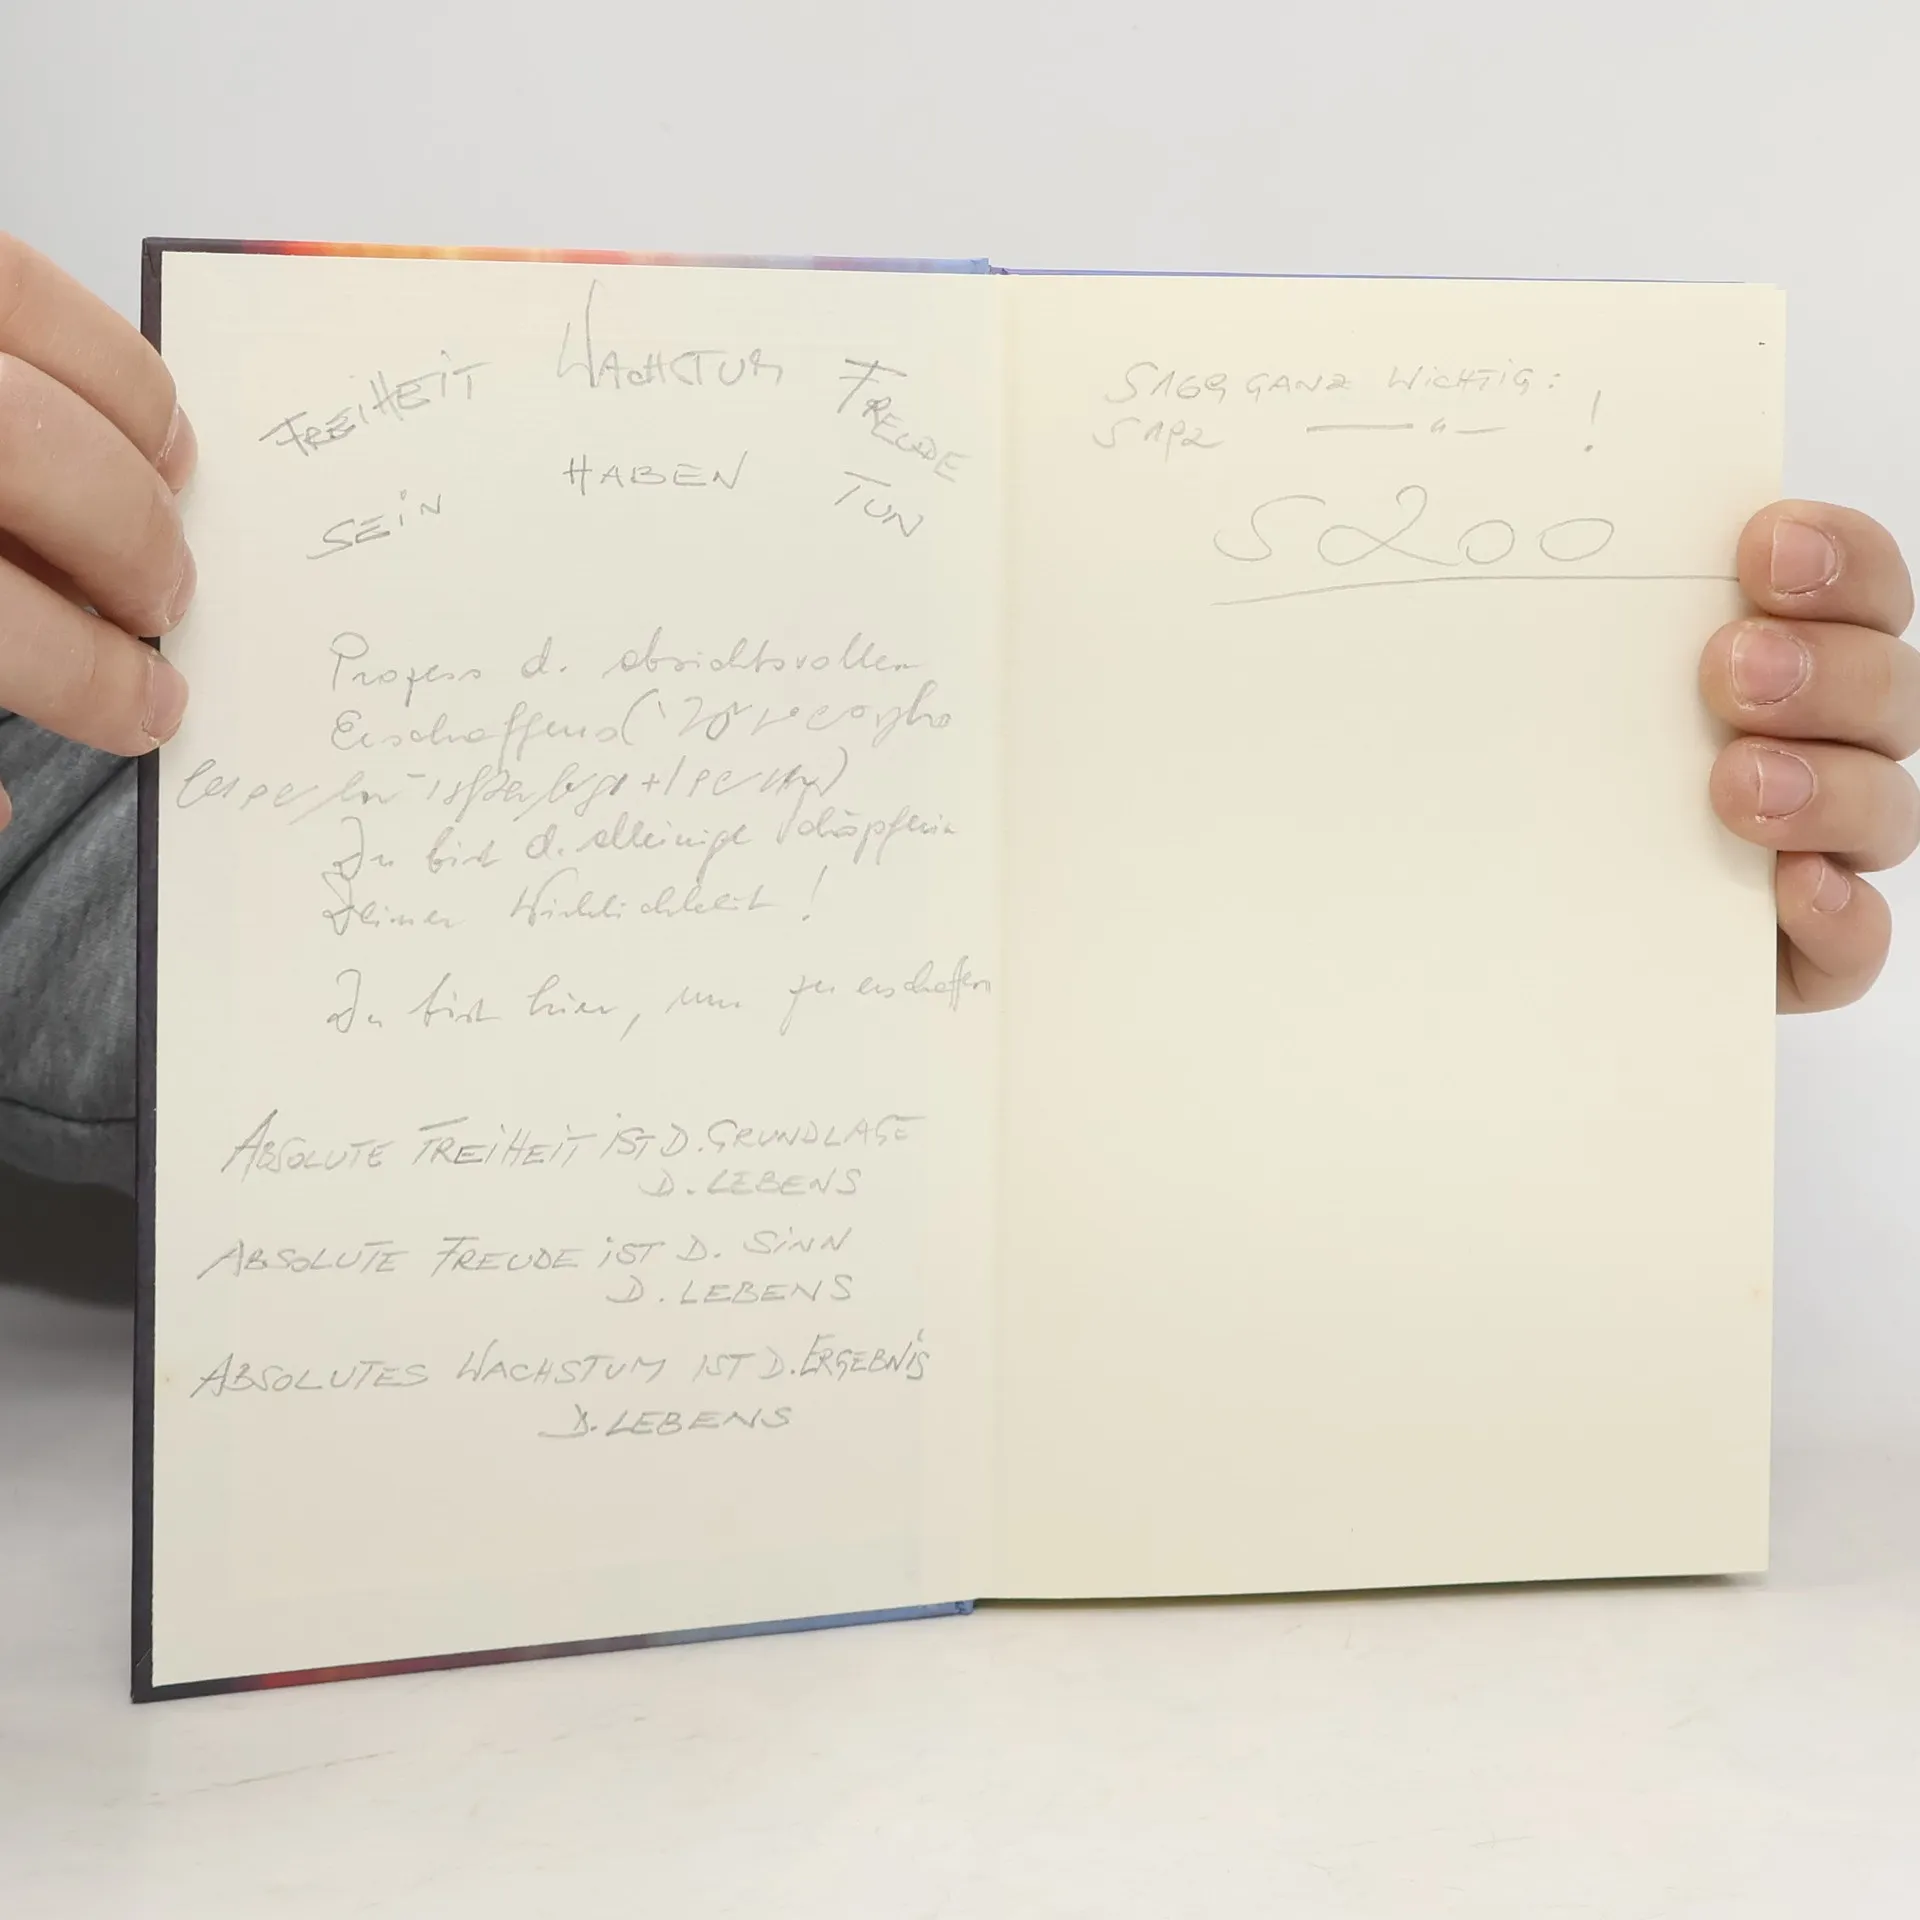 FREIHEIT WACHSTUM FREUDE
SEIN HABEN TUN
Prozess d. absichtsvollen
Erschaffens (
Du bist d. alleinige Schöpferin
Deiner Wirklichkeit!
Du bist hier, um zu erschaffen
ABSOLUTE FREIHEIT IST D. GRUNDLAGE
D. LEBENS
ABSOLUTE FREUDE IST D. SINN
D. LEBENS
ABSOLUTES WACHSTUM IST D. ERGEBNIS
D. LEBENS
GANZ WICHTIG:
— " — !
S 200